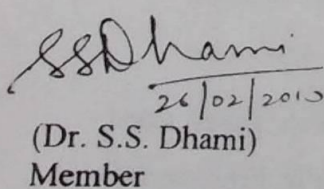 SSDhami
26/02/2010
(Dr. S.S. Dhami)
Member